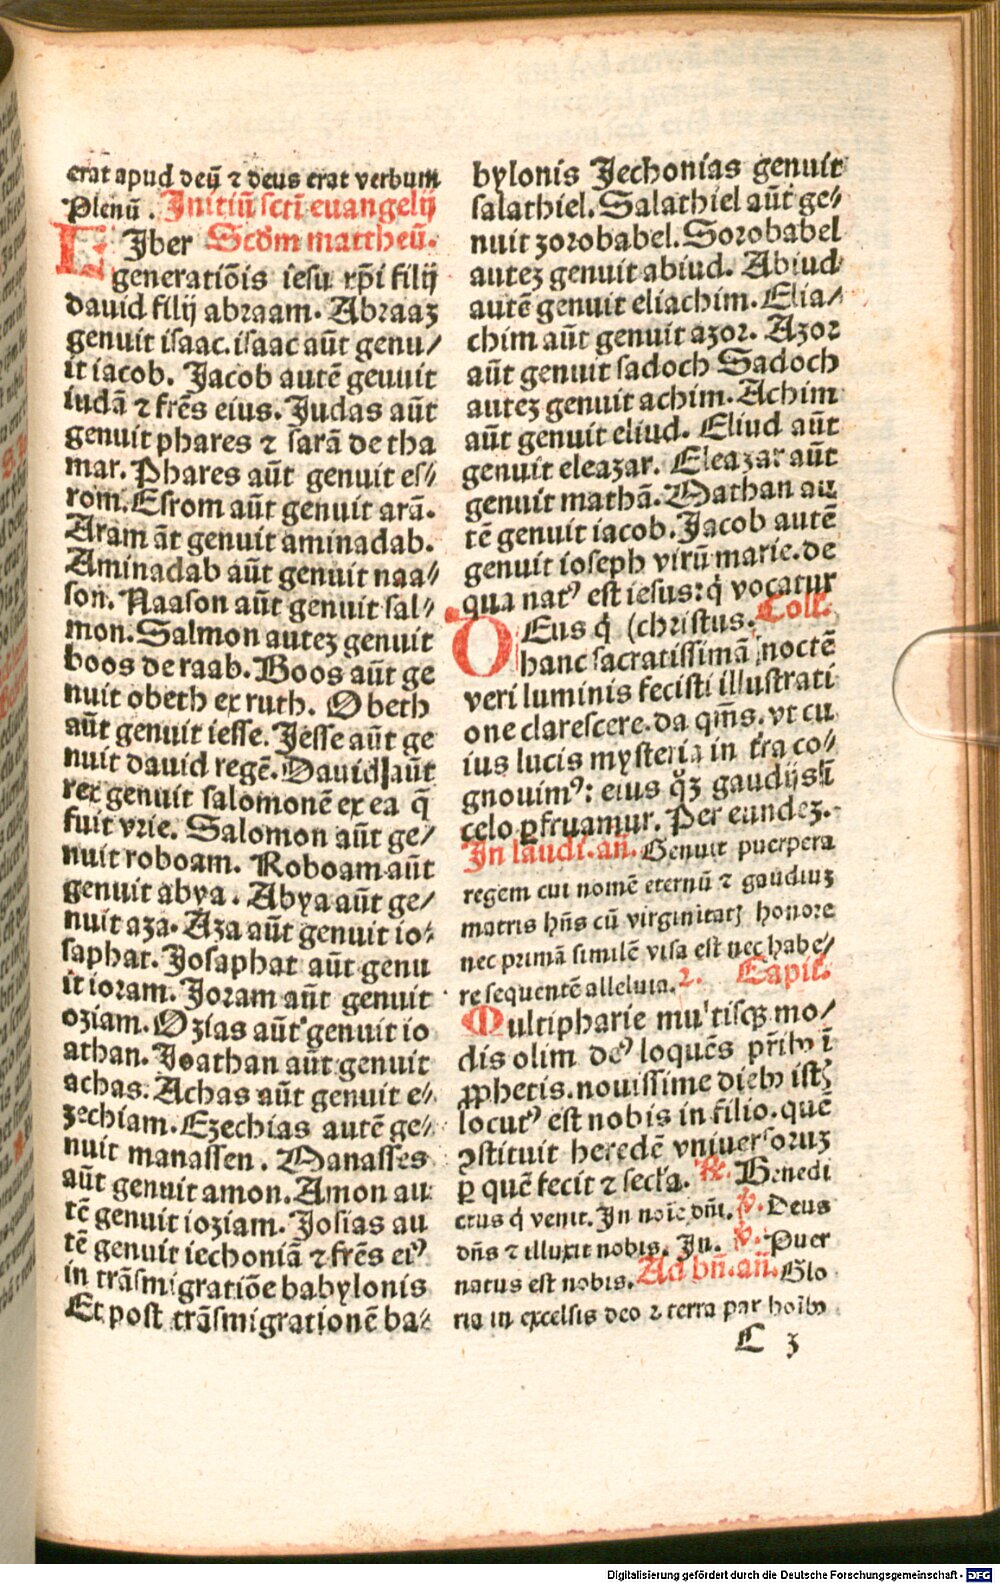 erat apud deū ⁊ deus erat verbum
Plenū. Initiū scti̅ euangelij
LIber Scd̅m mattheū.
generatiōis iesu xp̅i filij
dauid filij abraam. Abraaꝫ
genuit isaac. isaac aūt genu/
it iacob. Jacob autē geuuit
iudā ⁊ fr̅es eius. Judas aūt
genuit phares ⁊ sarā de tha
mar. Phares aūt genuit es/
rom. Esrom aūt genuit arā.
Aram āt genuit aminadab.
Aminadab aūt genuit naa/
son. Naason aūt genuit sal/
mon. Salmon auteꝫ genuit
boos de raab. Boos aūt ge
nuit obeth ex ruth. Obeth
aūt genuit iesse. Jesse aūt ge
nuit dauid regē. Dauid aūt
rex genuit salomonē ex ea q̄
fuit vrie. Salomon aūt ge/
nuit roboam. Roboam aūt
genuit abya. Abya aūt ge/
nuit aza. Aza aūt genuit io/
saphat. Josaphat aūt genu
it ioram. Joram aūt genuit
oziam. Ozias aūt genuit io
athan. Joathan aūt genuit
achas. Achas aūt genuit e/
zechiam. Ezechias autē ge/
nuit manassen. Manasses
aūt genuit amon. Amon au
tē genuit ioziam. Josias au
tē genuit iechoniā ⁊ fr̅es eiꝰ
in trāsmigratiōe babylonis
Et post trāsmigrationē ba/
bylonis Jechonias genuit
salathiel. Salathiel aūt ge/
nuit zorobabel. Sorobabel
auteꝫ genuit abiud. Abiud
autē genuit eliachim. Elia/
chim aūt genuit azor. Azor
aūt genuit sadoch Sadoch
auteꝫ genuit achim. Achim
aūt genuit eliud. Eliud aūt
genuit eleazar. Eleazar aūt
genuit mathā. Mathan au
tē genuit iacob. Jacob autē
genuit ioseph virū marie. de
qua natꝰ est iesus: q̇ vocatur
DEus q̇ (christus. Coll̅.
hanc sacratissimā noctē
veri luminis fecisti illustrati
one clarescere. da qm̅s. vt cu
ius lucis mysteria in tr̅a co/
gnouimꝰ: eius qꝫ gaudijs ī
celo ꝑfruamur. Per eundeꝫ.
In laudi. an̅. Genuit puerpera
regem cui nomē eternū ⁊ gaudiuꝫ
matris hn̅s cū virginitatꝭ honore
nec primā similē visa est nec habe/
re sequentē alleluia. 2. Capit̅.
Multipharie mu'tisqꝫ mo/
dis olim deꝰ loquēs pr̅ibꝰ ī
ꝓphetis. nouissime diebꝰ istꝭ
locutꝰ est nobis in filio. quē
ꝯstituit heredē vniuersoruꝫ
ꝑ quē fecit ⁊ secl̅a. ℟. Benedi
ctus q̇ venit. In noīe dn̅i. ℣. Deus
dn̅s ⁊ illuxit nobis. In. ℣. Puer
natus est nobis. Ad bn̅. an̅. Glo
ria in excelsis deo ⁊ terra pax hoībꝰ
C 3
Digitalisierung gefördert durch die Deutsche Forschungsgemeinschaft - DFG